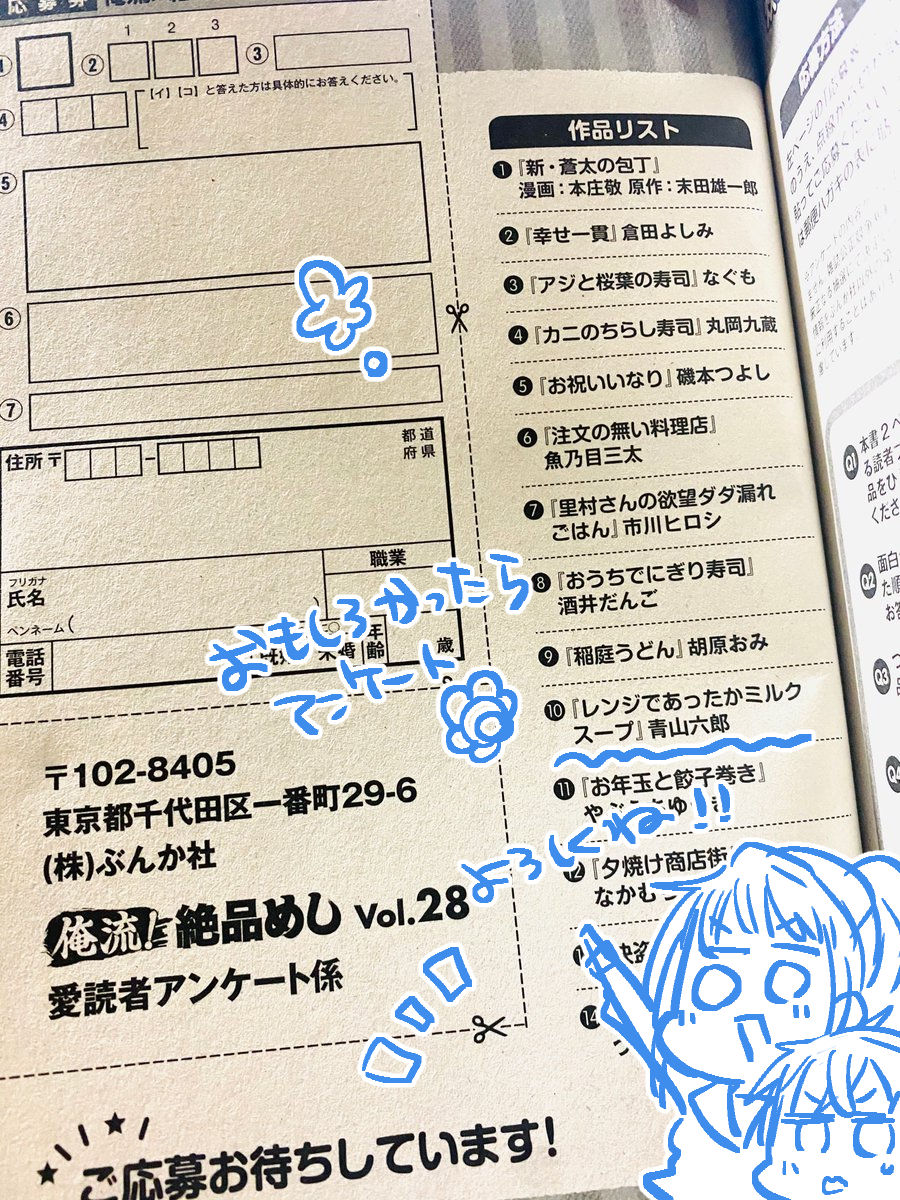 応募券
①
② 1 2 3
③
④
【イ】【コ】と答えた方は具体的にお答えください。
⑤
⑥
⑦
住所〒
都道
府県
職業
フリガナ
氏名
ペンネーム(
)
年齢
歳
電話
番号
おもしろかったら
アンケート
よろしくね!!
〒102-8405
東京都千代田区一番町29-6
(株)ぶんか社
俺流!絶品めし Vol.28
愛読者アンケート係
ご応募お待ちしています!
作品リスト
❶『新・蒼太の包丁』
漫画:本庄敬 原作:末田雄一郎
❷『幸せ一貫』倉田よしみ
❸『アジと桜葉の寿司』なぐも
❹『カニのちらし寿司』丸岡九蔵
❺『お祝いいなり』磯本つよし
❻『注文の無い料理店』
魚乃目三太
❼『里村さんの欲望ダダ漏れ
ごはん』市川ヒロシ
❽『おうちでにぎり寿司』
酒井だんご
❾『稲庭うどん』胡原おみ
❿『レンジであったかミルク
スープ』青山六郎
⓫『お年玉と餃子巻き』
⓬『夕焼け商店街
なかむ
⓮
応募方法
Q1 本書2ペ
る読者プ
品をひ
くださ
Q2 面白
た順
お答
Q3
Q4